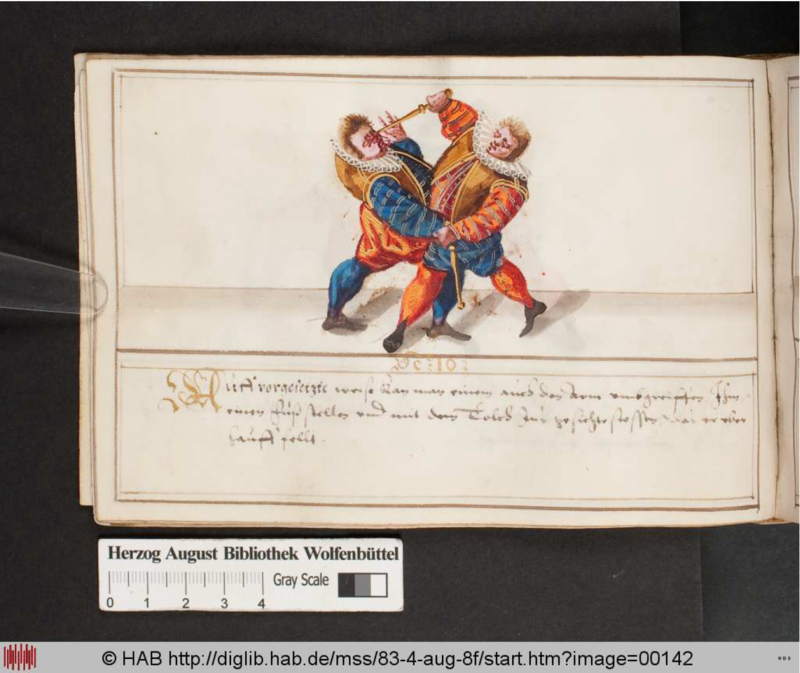 N:o 10:
Auff vorgesetzte weise kan man einem auch den Arm umbgreiffen, Ihm
einen fuß stellen und mit dem Tolch Ins gesichte stossen, das er uber
hauff felt.
Herzog August Bibliothek Wolfenbüttel
Gray Scale
0 1 2 3 4
© HAB http://diglib.hab.de/mss/83-4-aug-8f/start.htm?image=00142